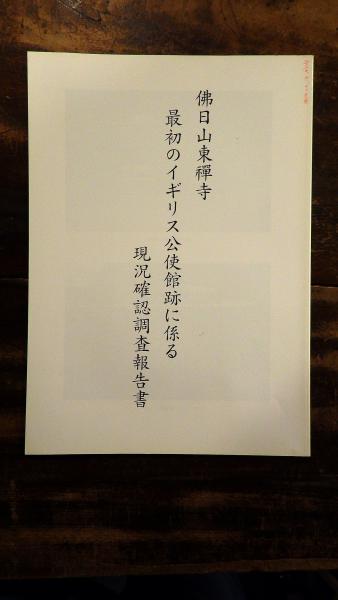 佛日山東禪寺
最初のイギリス公使館跡に係る
現況確認調査報告書